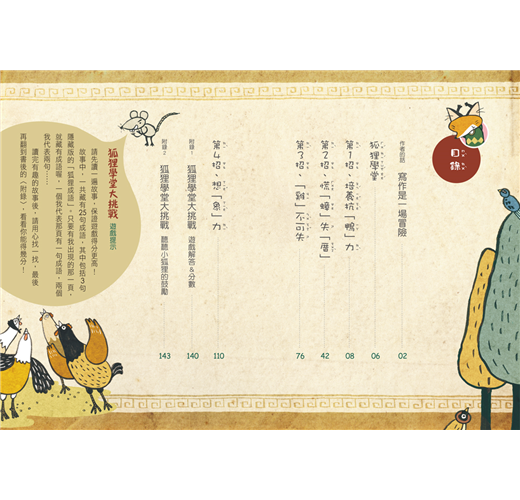 目錄
作者的話 寫作是一場冒險 02
狐狸學堂 06
第1招、培養抗「鴨」力 08
第2招、慌「蟑」失「厝」 42
第3招、「雞」不可失 76
第4招、想「象」力 110
附錄1 狐狸學堂大挑戰 遊戲解答&分數 140
附錄2 狐狸學堂大挑戰 聽聽小狐狸的鼓勵 143
狐狸學堂大挑戰 遊戲提示
請先讀一遍故事，保證遊戲得分更高！
故事中，一共藏有25句成語，其中包括3句
隱藏版的「狐狸成語」，只要有我出現的那一頁，
就藏有成語喔，一個我代表那頁有一句成語，兩個
我代表兩句……
讀完有趣的故事後，請用心找一找，最後
再翻到書後的〈附錄〉，看看你能得幾分！